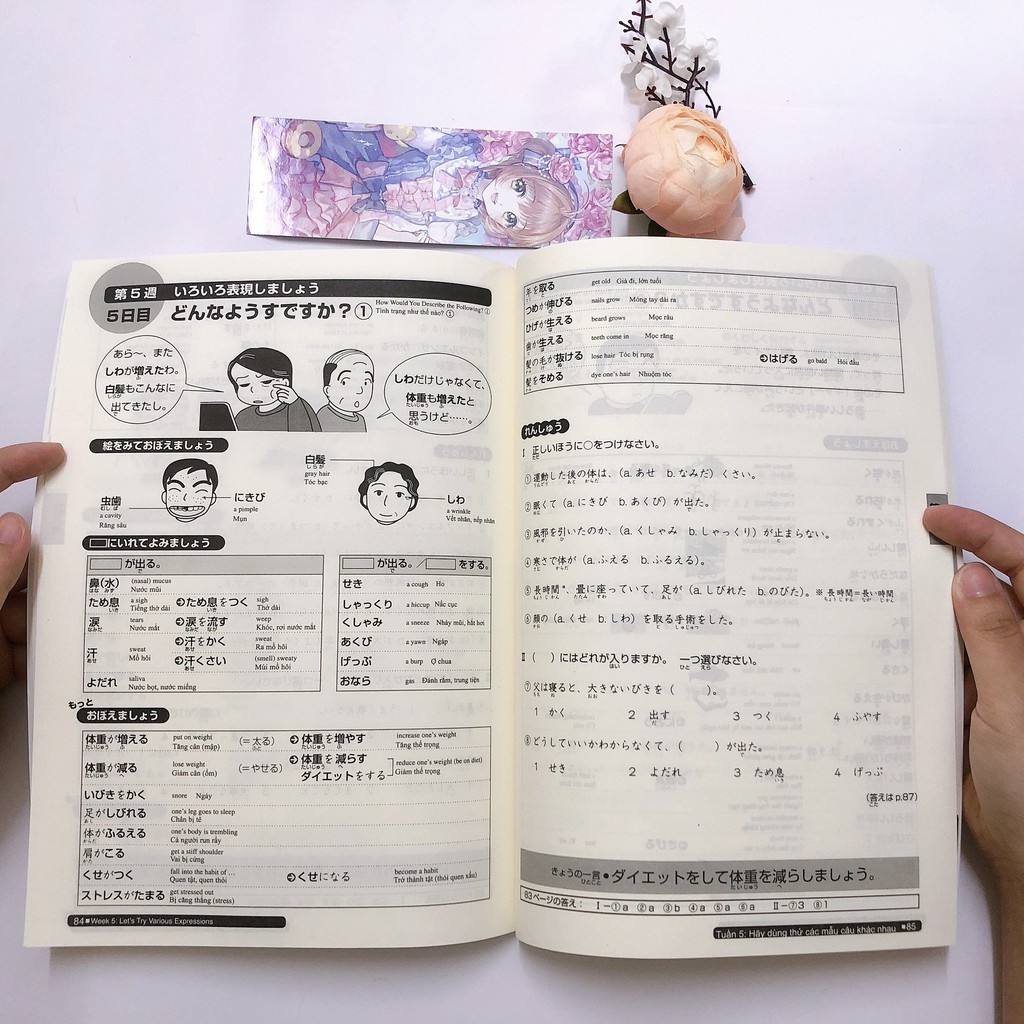 第5週 いろいろ表現しましょう
5日目 どんなようすですか?①
How Would You Describe the Following? ①
Tình trạng như thế nào? ①
あら〜、また
しわが増えたわ。
白髪もこんなに
出てきたし。
しわだけじゃなくて、
体重も増えたと
思うけど……。
絵をみておぼえましょう
虫歯
a cavity
Răng sâu
にきび
a pimple
Mụn
白髪
gray hair
Tóc bạc
しわ
a wrinkle
Vết nhăn, nếp nhăn
にいれてよみましょう
が出る。
鼻(水) (nasal) mucus Nước mũi
ため息 a sigh Tiếng thở dài ➔ため息をつく sigh Thở dài
涙 tears Nước mắt ➔涙を流す weep Khóc, rơi nước mắt
汗 sweat Mồ hôi ➔汗をかく sweat Ra mồ hôi
➔汗くさい (smell) sweaty Mùi mồ hôi
よだれ saliva Nước bọt, nước miếng
が出る。/ をする。
せき a cough Ho
しゃっくり a hiccup Nấc cục
くしゃみ a sneeze Nhảy mũi, hắt hơi
あくび a yawn Ngáp
げっぷ a burp Ợ chua
おなら gas Đánh rắm, trung tiện
もっと
おぼえましょう
体重が増える put on weight Tăng cân (mập) (=太る) ➔体重を増やす increase one's weight Tăng thể trọng
体重が減る lose weight Giảm cân (ốm) (=やせる) ➔体重を減らす
ダイエットをする reduce one's weight (be on diet) Giảm thể trọng
いびきをかく snore Ngáy
足がしびれる one's leg goes to sleep Chân bị tê
体がふるえる one's body is trembling Cả người run rẩy
肩がこる get a stiff shoulder Vai bị cứng
くせがつく fall into the habit of … Quen tật, quen thói ➔くせになる become a habit Trở thành tật (thói quen xấu)
ストレスがたまる get stressed out Bị căng thẳng (stress)
84 ■ Week 5: Let's Try Various Expressions
年を取る get old Già đi, lớn tuổi
つめが伸びる nails grow Móng tay dài ra
ひげが生える beard grows Mọc râu
歯が生える teeth come in Mọc răng
髪の毛が抜ける lose hair Tóc bị rụng ➔はげる go bald Hói đầu
髪をそめる dye one's hair Nhuộm tóc
れんしゅう
Ⅰ 正しいほうに○をつけなさい。
①運動した後の体は、(a. あせ b. なみだ)くさい。
②眠くて(a. にきび b. あくび)が出た。
③風邪を引いたのか、(a. くしゃみ b. しゃっくり)が止まらない。
④寒さで体が(a. ふえる b. ふるえる)。
⑤長時間※、畳に座っていて、足が(a. しびれた b. のびた)。※ 長時間=長い時間
⑥顔の(a. くせ b. しわ)を取る手術をした。
Ⅱ( )にはどれが入りますか。 一つ選びなさい。
⑦父は寝ると、大きないびきを( )。
1 かく 2 出す 3 つく 4 ふやす
⑧どうしていいかわからなくて、( )が出た。
1 せき 2 よだれ 3 ため息 4 げっぷ
(答えは p.87)
きょうの一言●ダイエットをして体重を減らしましょう。
83ページの答え: Ⅰ-①a ②a ③b ④a ⑤a ⑥a Ⅱ-⑦3 ⑧1
Tuần 5: Hãy dùng thử các mẫu câu khác nhau ■85